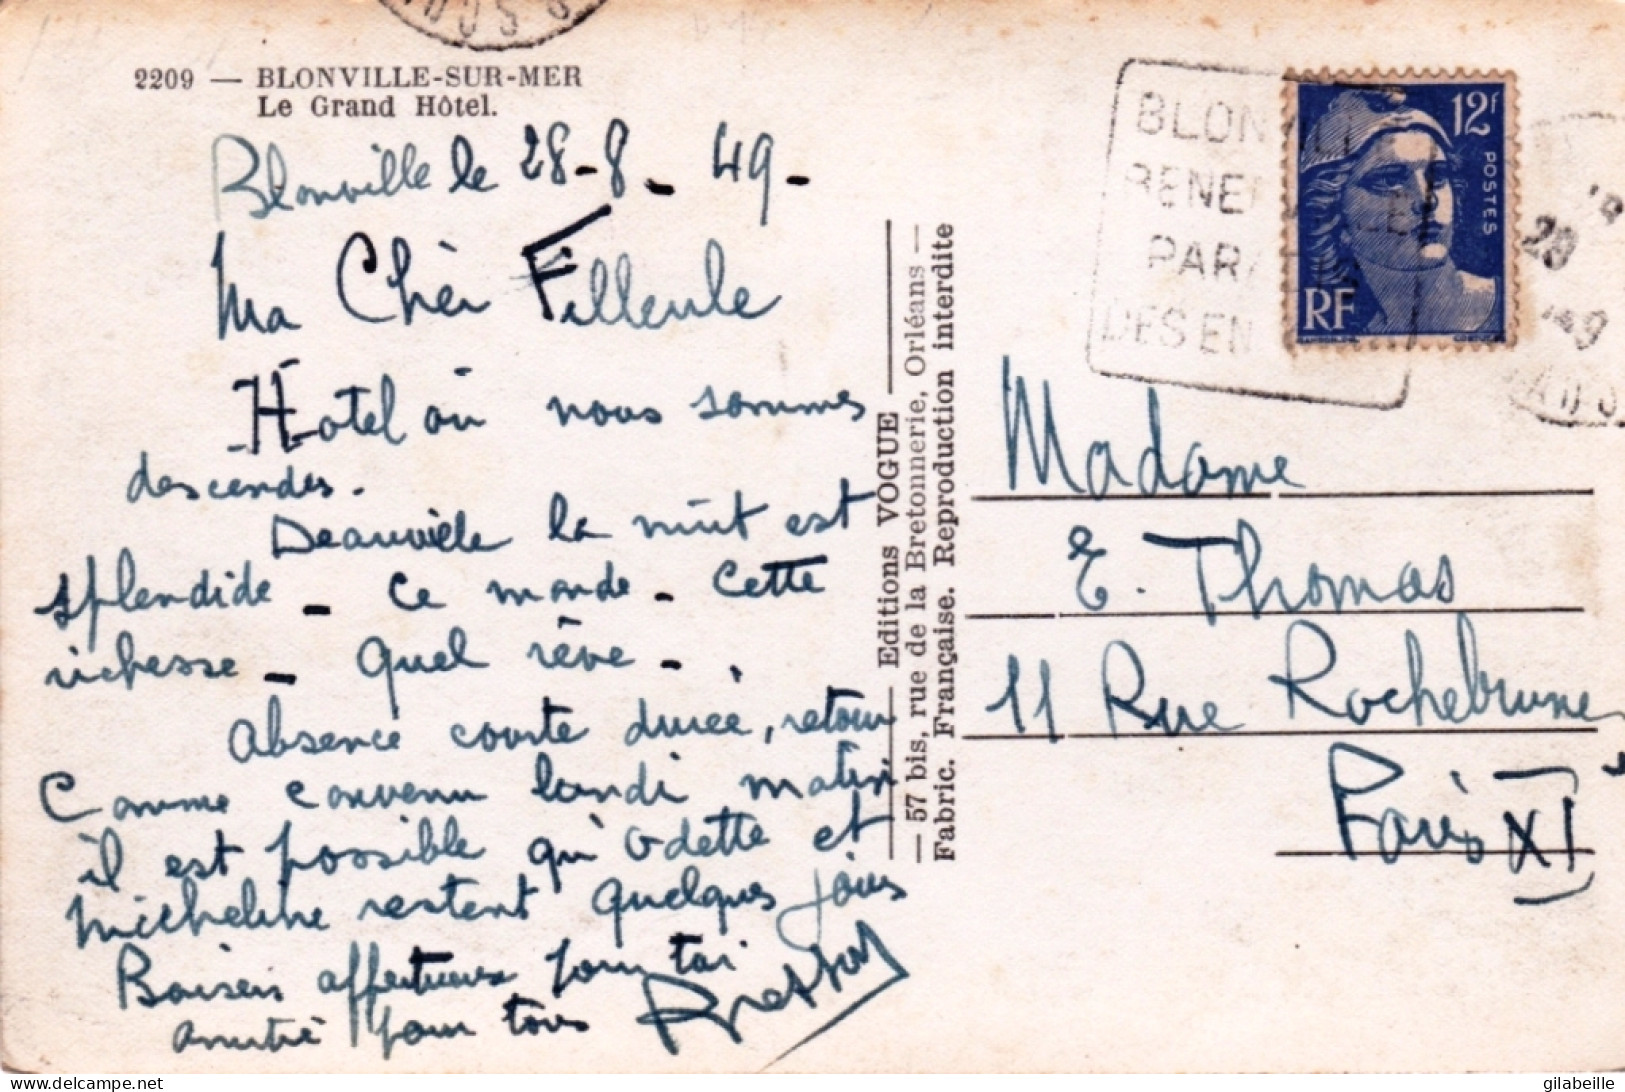 2209 — BLONVILLE-SUR-MER
Le Grand Hôtel.
Blonville le 28-8-49-
Ma Chèr Filleule
Hotel où nous sommes
descendes.
Deauville la nuit est
splendide - Ce monde - Cette
richesse - Quel rêve - .
Absence courte durée, retour
Comme convenu lundi matin
il est possible qu'Odette et
Micheline restent quelques jours
Baisers affectueux pour toi
amitié pour tous
— Editions VOGUE —
— 57 bis, rue de la Bretonnerie, Orléans —
Fabric. Française. Reproduction interdite
BLONVILL
PAR
DES EN
12f
POSTES
RF
28
Madame
E. Thomas
11 Rue Rochebrune
Paris XI
25/02/2023 12:02
gilabeille